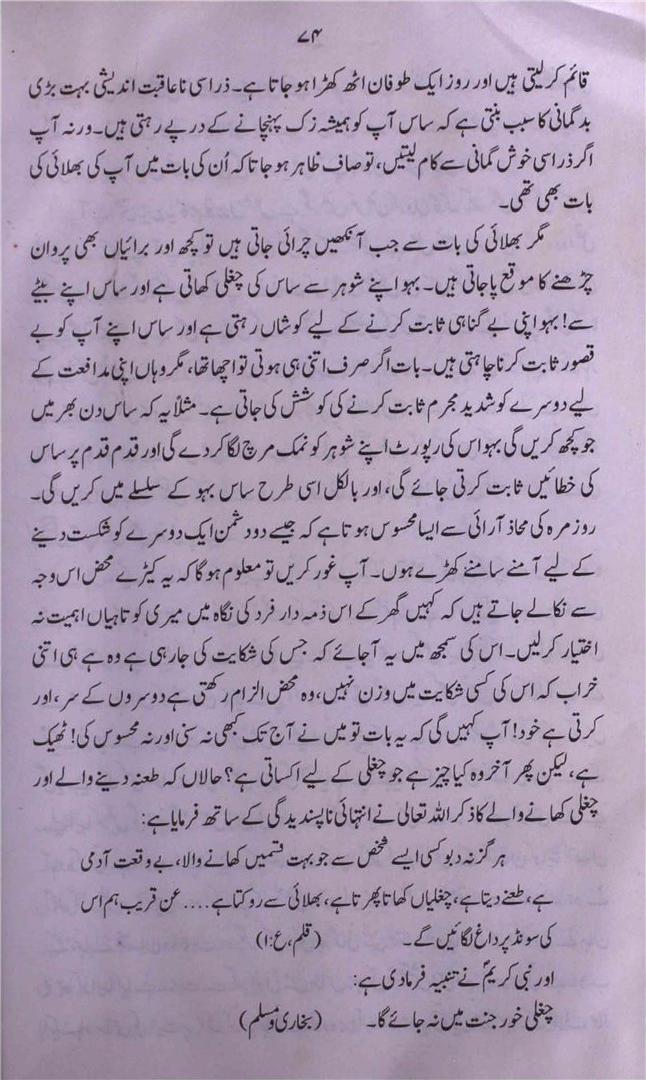 ۷۴
قائم کر لیتی ہیں اور روز ایک طوفان اٹھ کھڑا ہو جاتا ہے۔ ذرا سی ناعاقبت اندیشی بہت بڑی
بدگمانی کا سبب بنتی ہے کہ ساس آپ کو ہمیشہ زک پہنچانے کے درپے رہتی ہیں۔ ورنہ آپ
اگر ذرا سی خوش گمانی سے کام لیتیں، تو صاف ظاہر ہو جاتا کہ اُن کی بات میں آپ کی بھلائی کی
بات بھی تھی۔
مگر بھلائی کی بات سے جب آنکھیں چرائی جاتی ہیں تو کچھ اور برائیاں بھی پروان
چڑھنے کا موقع پا جاتی ہیں۔ بہو اپنے شوہر سے ساس کی چغلی کھاتی ہے اور ساس اپنے بیٹے
سے! بہو اپنی بے گناہی ثابت کرنے کے لیے کوشاں رہتی ہے اور ساس اپنے آپ کو بے
قصور ثابت کرنا چاہتی ہیں۔ بات اگر صرف اتنی ہی ہوتی تو اچھا تھا، مگر وہاں اپنی مدافعت کے
لیے دوسرے کو شدید مجرم ثابت کرنے کی کوشش کی جاتی ہے۔ مثلاً یہ کہ ساس دن بھر میں
جو کچھ کریں گی بہو اس کی رپورٹ اپنے شوہر کو نمک مرچ لگا کر دے گی اور قدم قدم پر ساس
کی خطائیں ثابت کرتی جائے گی، اور بالکل اسی طرح ساس بہو کے سلسلے میں کریں گی۔
روز مرہ کی محاذ آرائی سے ایسا محسوس ہوتا ہے کہ جیسے دو دشمن ایک دوسرے کو شکست دینے
کے لیے آمنے سامنے کھڑے ہوں۔ آپ غور کریں تو معلوم ہوگا کہ یہ کیڑے محض اس وجہ
سے نکالے جاتے ہیں کہ کہیں گھر کے اس ذمہ دار فرد کی نگاہ میں میری کوتاہیاں اہمیت نہ
اختیار کر لیں۔ اس کی سمجھ میں یہ آ جائے کہ جس کی شکایت کی جا رہی ہے وہ ہے ہی اتنی
خراب کہ اس کی کسی شکایت میں وزن نہیں، وہ محض الزام رکھتی ہے دوسروں کے سر، اور
کرتی ہے خود! آپ کہیں گی کہ یہ بات تو میں نے آج تک کبھی نہ سنی اور نہ محسوس کی! ٹھیک
ہے، لیکن پھر آخر وہ کیا چیز ہے جو چغلی کے لیے اکساتی ہے؟ حالاں کہ طعنہ دینے والے اور
چغلی کھانے والے کا ذکر اللہ تعالی نے انتہائی ناپسندیدگی کے ساتھ فرمایا ہے:
ہر گز نہ دبو کسی ایسے شخص سے جو بہت قسمیں کھانے والا، بے وقعت آدمی
ہے، طعنے دیتا ہے، چغلیاں کھاتا پھرتا ہے، بھلائی سے روکتا ہے.... عن قریب ہم اس
کی سونڈ پر داغ لگائیں گے۔ (قلم، ع:۱)
اور نبی کریمؐ نے تنبیہ فرما دی ہے:
چغلی خور جنت میں نہ جائے گا۔ (بخاری و مسلم)